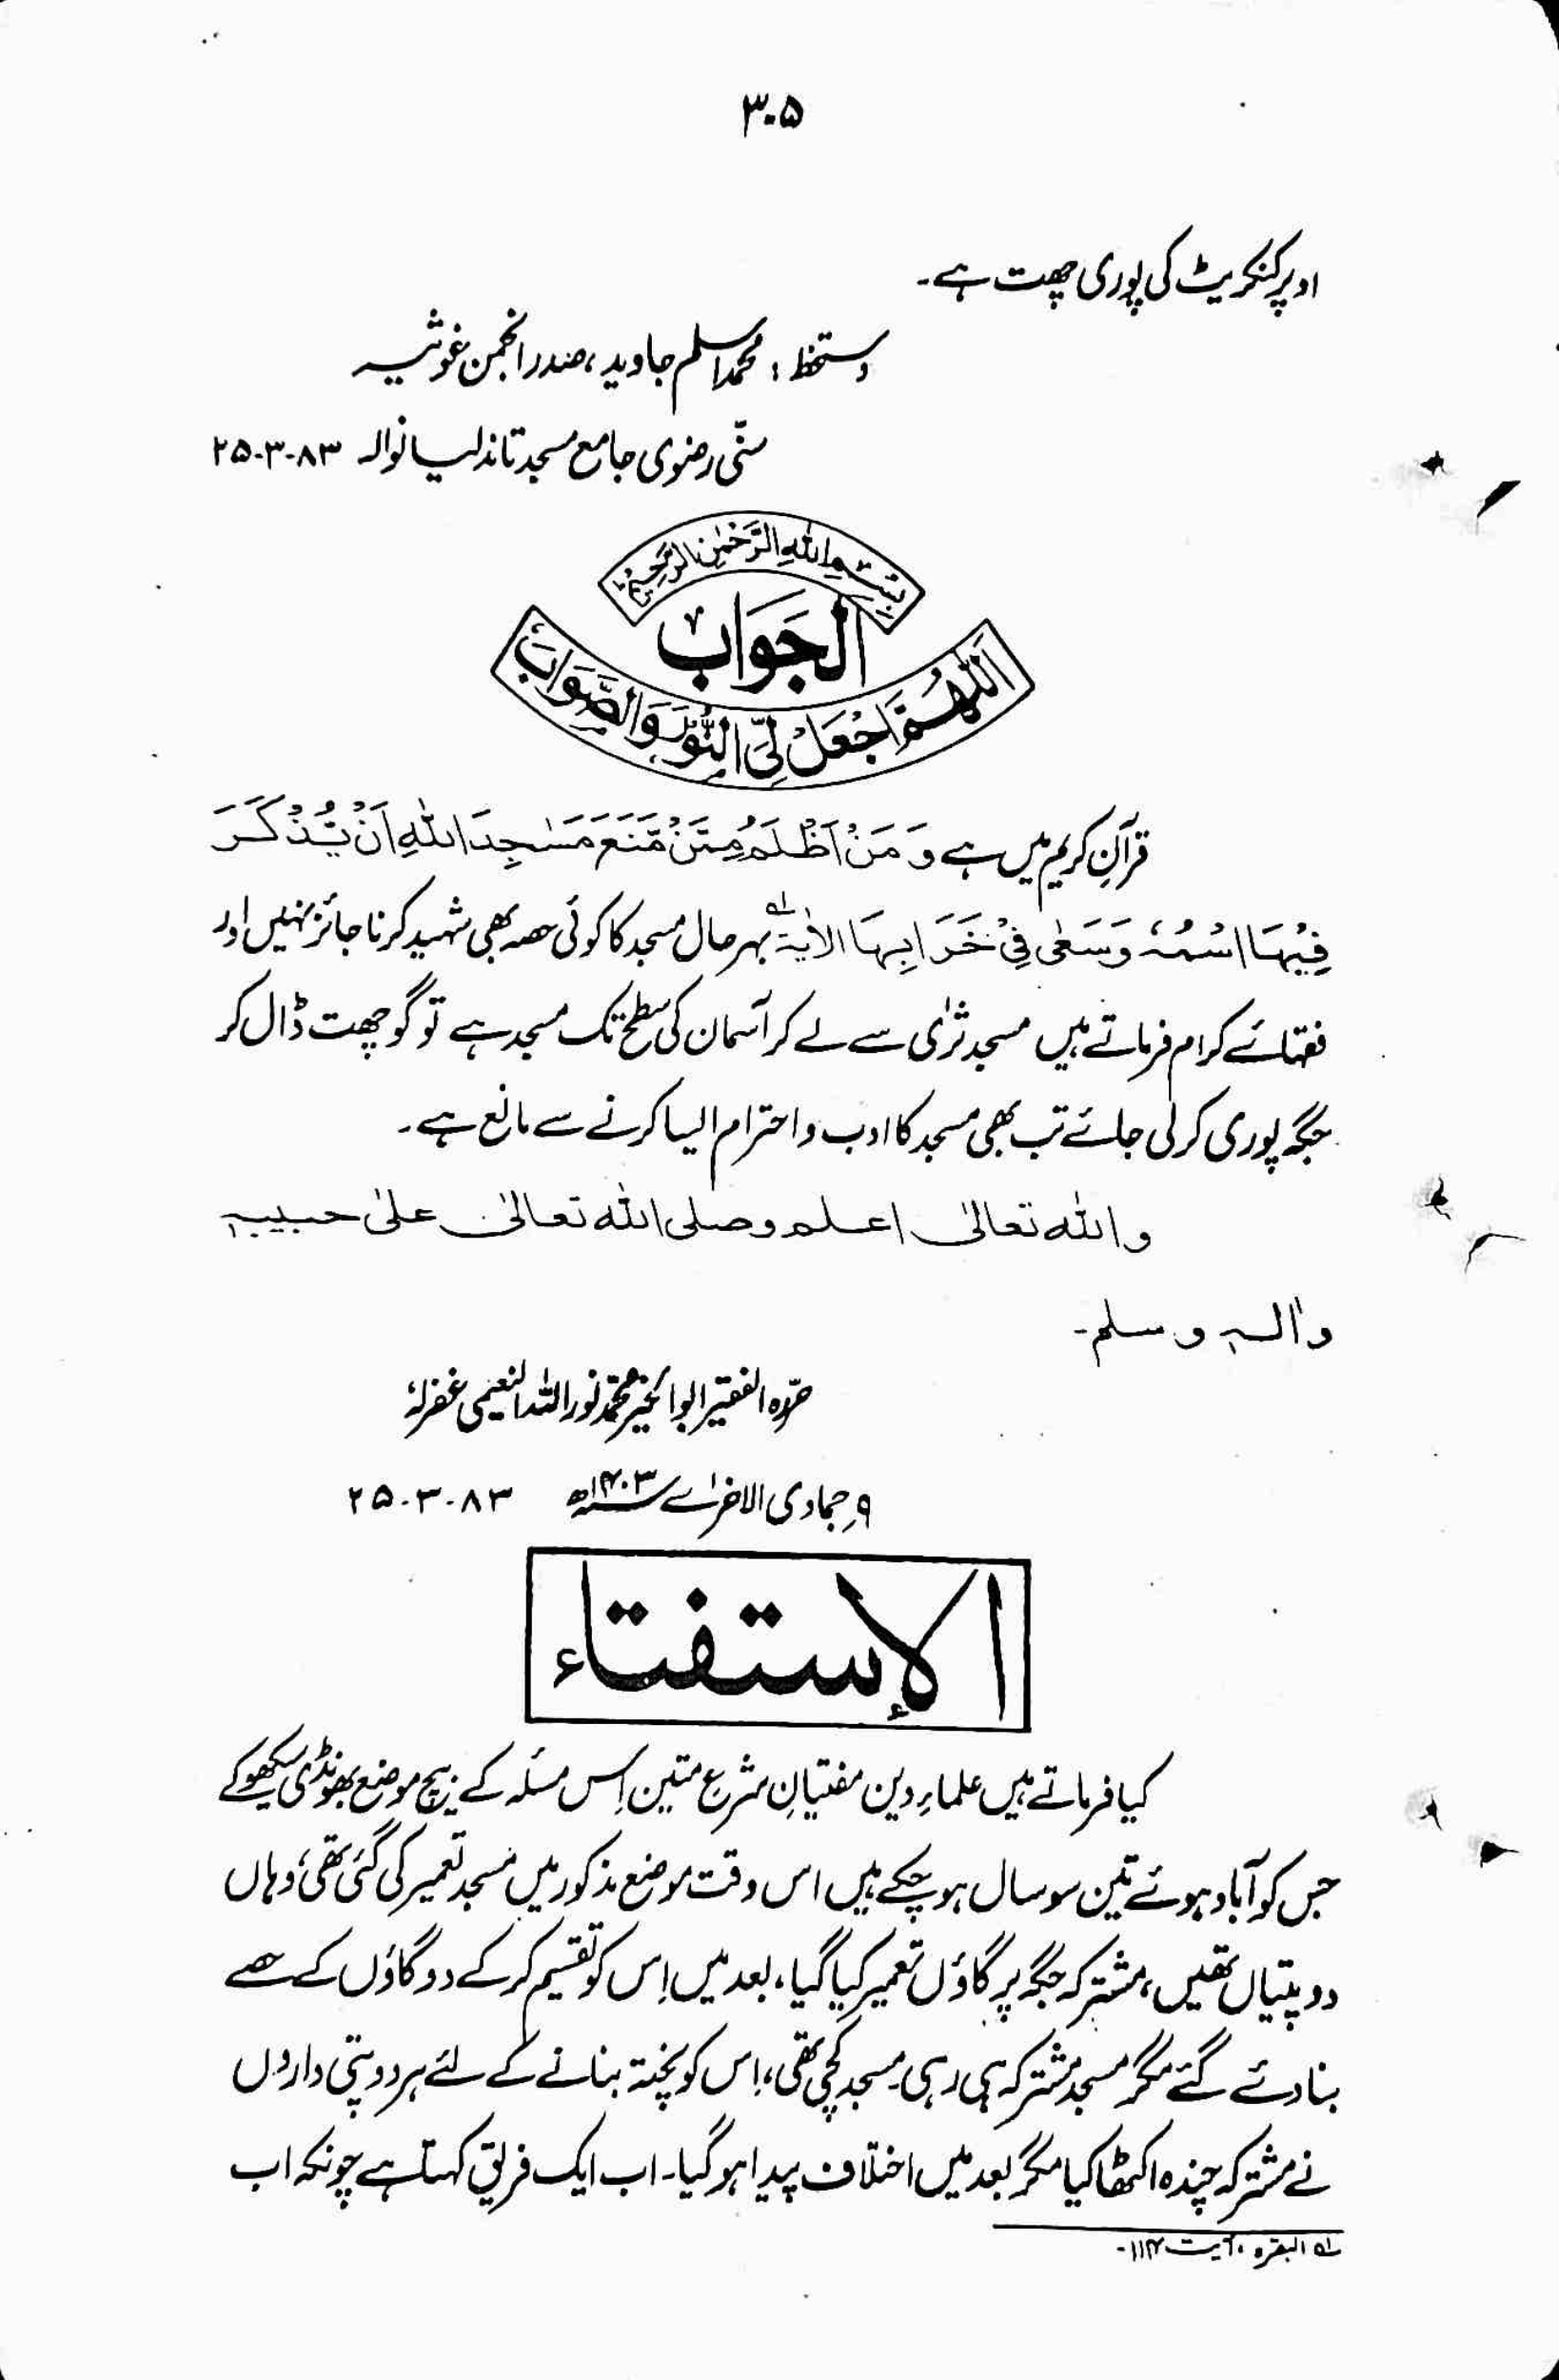 ۳۰۵
اوپر کنکریٹ کی پوری چھت ہے۔
دستخط: محمد اسلم جاوید، صدر انجمن غوثیہ
سنّی رضوی جامع مسجد تاندلیانوالہ ۸۳-۳-۲۵
بِسْمِ اللهِ الرَّحْمٰنِ الرَّحِيْمِ
الجَوَاب
اَللّٰهُمَّ اجْعَلْ لِیَ النُّوْرَ وَالصَّوَابَ
قرآنِ کریم میں ہے وَ مَنْ اَظْلَمُ مِمَّنْ مَّنَعَ مَسٰجِدَ اللهِ اَنْ يُّذْكَرَ
فِيْهَا اسْمُهٗ وَسَعٰى فِيْ خَرَابِهَا الاٰیۃ؂۱ بہرحال مسجد کا کوئی حصہ بھی شہید کرنا جائز نہیں اور
فقہائے کرام فرماتے ہیں مسجد ثرٰی سے لے کر آسمان کی سطح تک مسجد ہے تو گو چھت ڈال کر
جگہ پوری کر لی جائے تب بھی مسجد کا ادب و احترام ایسا کرنے سے مانع ہے۔
والله تعالىٰ اعلم وصلى الله تعالىٰ علىٰ حبيبہٖ
واٰلہٖ وسلم۔
حرّرہ الفقیر ابوالخیر محمد نور اللہ النعیمی غفرلہٗ
۹؍جمادی الاخرٰے ۱۴۰۳ھ ۸۳-۳-۲۵
الإستفتاء
کیا فرماتے ہیں علماءِ دین مفتیانِ شرع متین اِس مسئلہ کے بیچ موضع بھونڈی سکھو کے
جس کو آباد ہوئے تین سو سال ہو چکے ہیں اس وقت موضع مذکور میں مسجد تعمیر کی گئی تھی، وہاں
دو پتیاں تھیں، مشترکہ جگہ پر گاؤں تعمیر کیا گیا، بعد میں اِس کو تقسیم کر کے دو گاؤں کے حصے
بنا دئے گئے مگر مسجد مشترکہ ہی رہی۔ مسجد کچی تھی، اِس کو پختہ بنانے کے لئے ہر دو پتی داروں
نے مشترکہ چندہ اکٹھا کیا مگر بعد میں اختلاف پیدا ہو گیا۔ اب ایک فریق کہتا ہے چونکہ اب
؂۱ البقرہ، آیت ۱۱۴۔